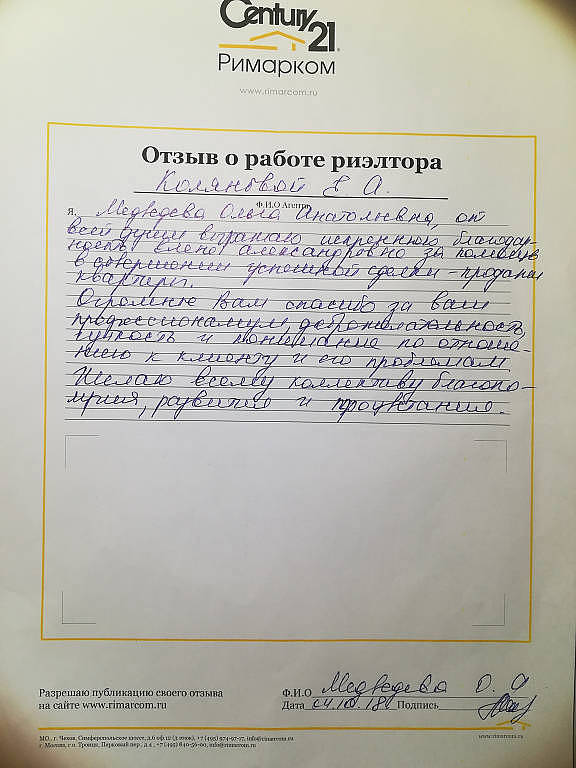 Century 21
Римарком
www.rimarcom.ru
Отзыв о работе риэлтора
Коляновой Е А.
Ф.И.О Агента
Я, Медведева Ольга Анатольевна, от
всей души выражаю искреннюю благодар-
ность Елене Александровне за помощь
в совершении успешной сделки - продажи
квартиры.
Огромное Вам спасибо за ваш
профессионализм, доброжелательность,
чуткость и понимание по отноше-
нию к клиенту и его проблемам.
Желаю всему коллективу благопо-
лучия, развития и процветания.
Разрешаю публикацию своего отзыва
на сайте www.rimarcom.ru
Ф.И.О Медведева О. А
Дата 04.10.18 Подпись
МО., г. Чехов, Симферопольское шоссе, д.6 оф.12 (2 этаж), +7 (495) 974-97-77, info@rimarcom.ru
г. Москва, г.о. Троицк, Парковый пер., д.4 , +7 (495) 840-56-00, info@rimarcom.ru
www.rimarcom.ru